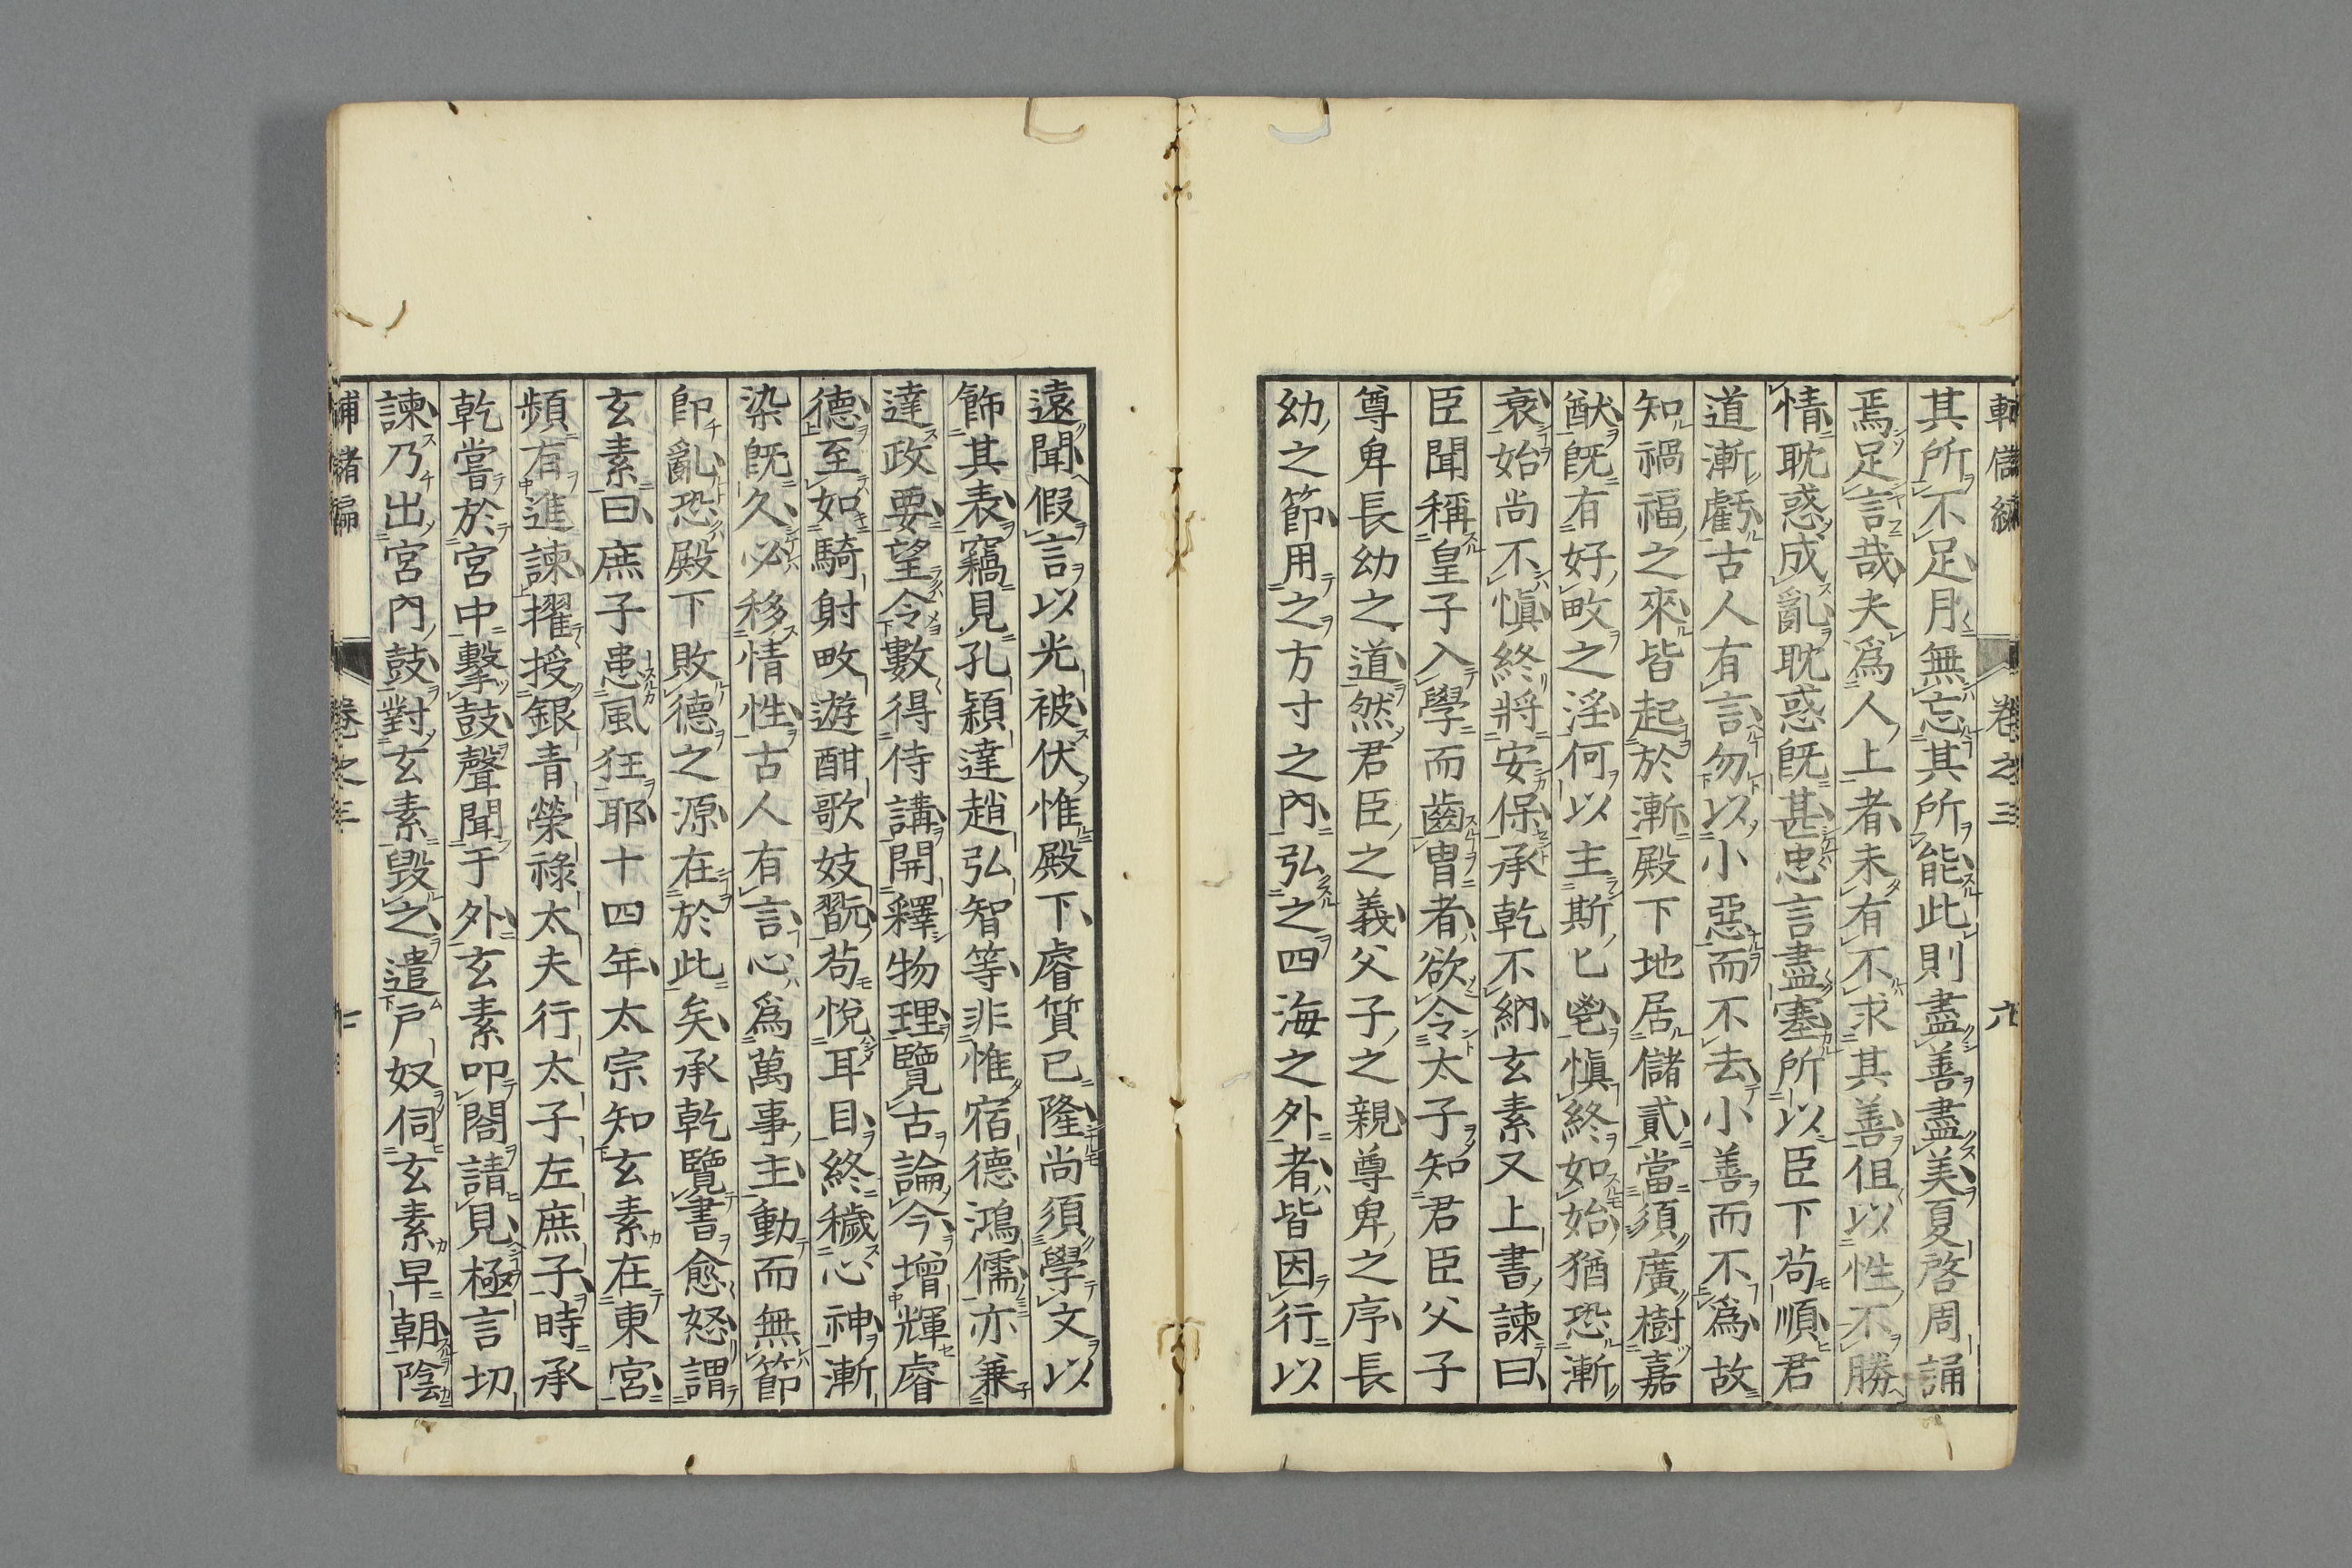 其所不足月無忘其所能此則盡善盡美夏啓周誦
焉足言哉夫爲人上者未有不求其善但以性不勝
情耽惑成亂耽惑旣甚忠言盡塞所以臣下苟順君
道漸虧古人有言勿以小惡而不去小善而不爲故
知禍福之來皆起於漸殿下地居儲貳當須廣樹嘉
猷旣有好畋之淫何以主斯匕鬯愼終如始猶恐漸
衰始尚不愼終將安保承乾不納玄素又上書諫曰
臣聞稱皇子入學而齒冑者欲令太子知君臣父子
尊卑長幼之道然君臣之義父子之親尊卑之序長
幼之節用之方寸之內弘之四海之外者皆因行以
遠聞假言以光被伏惟殿下睿質已隆尚須學文以
飾其表竊見孔穎達趙弘智等非惟宿德鴻儒亦兼
達政要望令數得侍講開釋物理覽古論今增輝睿
德至如騎射畋遊酣歌妓翫苟悅耳目終穢心神漸
染旣久必移情性古人有言心爲萬事主動而無節
卽亂恐殿下敗德之源在於此矣承乾覽書愈怒謂
玄素曰庶子患風狂耶十四年太宗知玄素在東宮
頻有進諫擢授銀青榮祿太夫行太子左庶子時承
乾嘗於宮中擊鼓聲聞于外玄素叩閤請見極言切
諫乃出宮內鼓對玄素毀之遣戶奴伺玄素早朝陰
卷之三